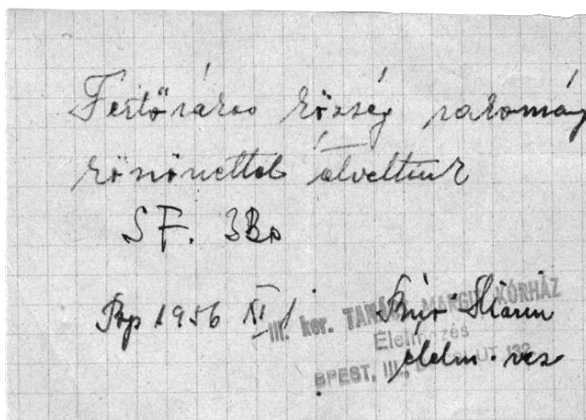 Fertőrákos község rakomány
köszönettel átvettük
SF. 3Bp
Bp 1956 XI 1
III. ker. TANÁCS MARGIT KÓRHÁZ
Élelmezés
BPEST. III., ÚT 132
élelm. vez